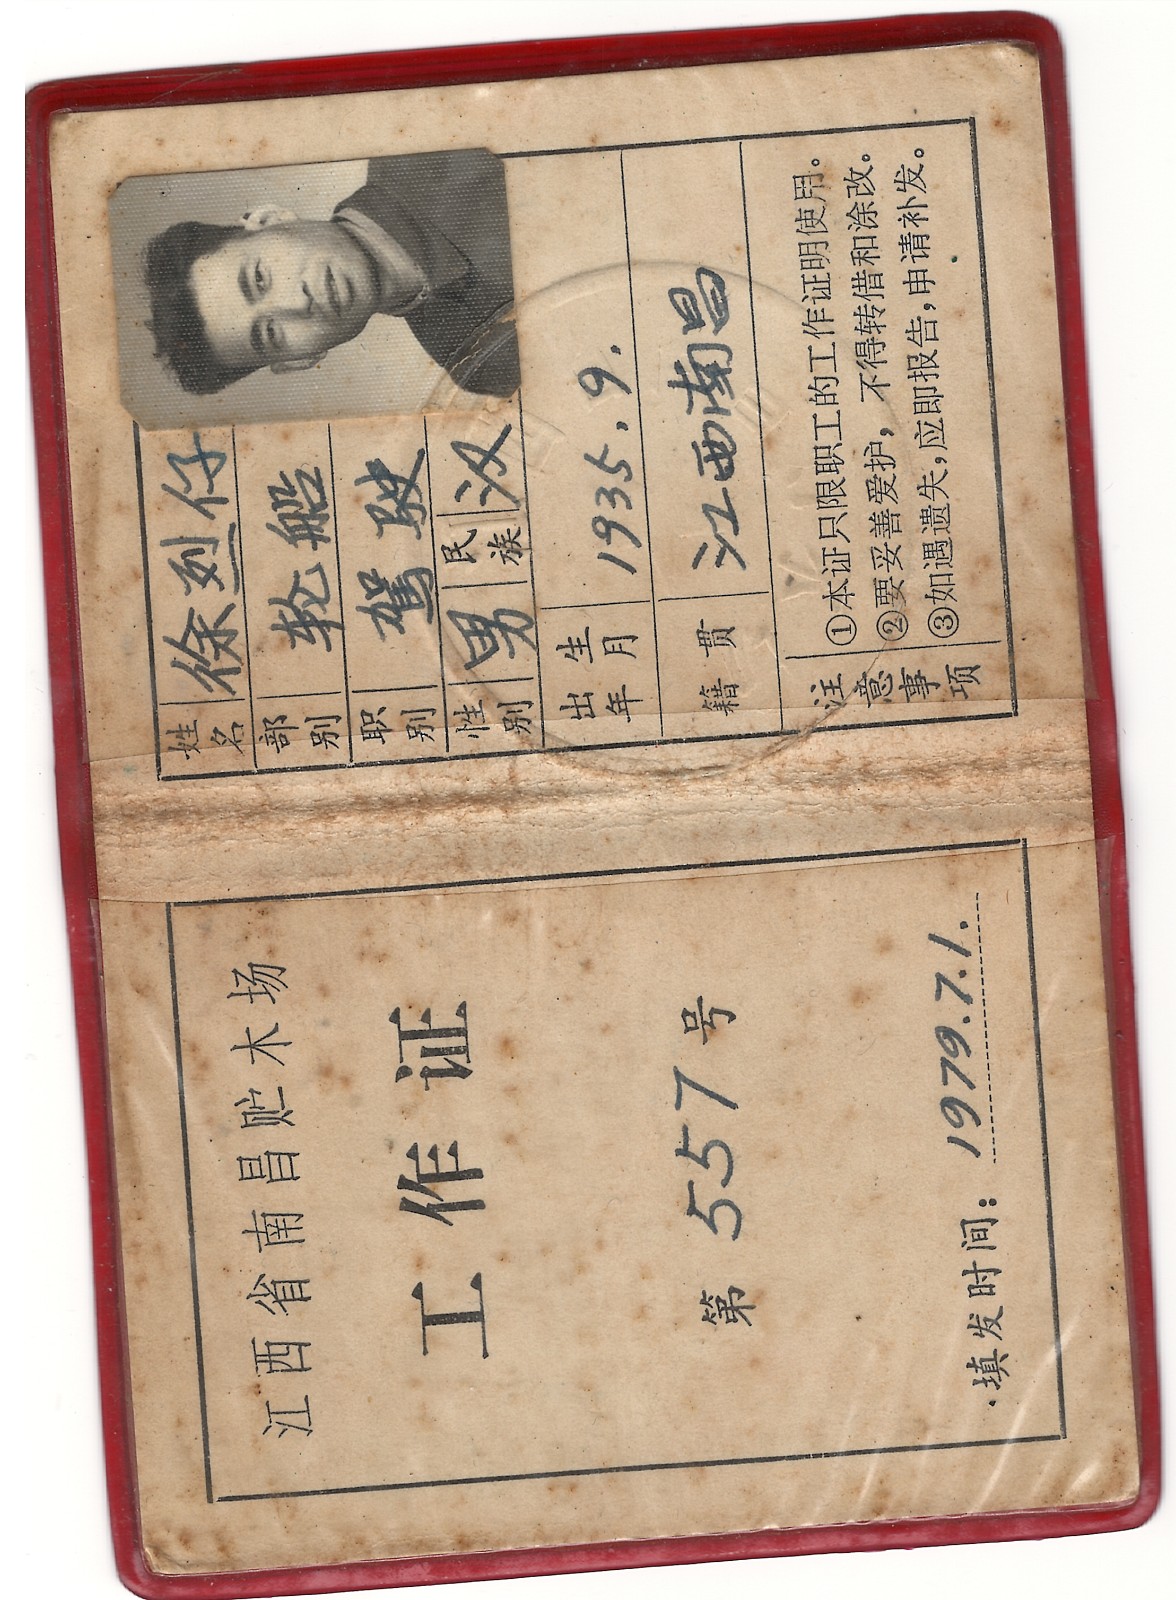 江西省南昌贮木场
工作证
第 557 号
填发时间：1979.7.1.
姓名 徐烈仔
部别 轮船
职别 驾驶
性别 男 民族 汉
出生年月 1935.9.
籍贯 江西南昌
注意事项
①本证只限职工的工作证明使用。
②要妥善爱护，不得转借和涂改。
③如遇遗失，应即报告，申请补发。